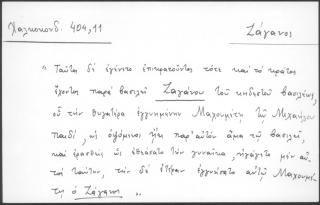 Χαλκοκονδ. 404,11
Ζάγανος
" Ταῦτα δὲ ἐγένετο ἐπικρατοῦντος τότε καὶ τὸ κράτος
ἔχοντος παρὰ βασιλεῖ Ζαγάνου τοῦ κηδεστοῦ βασιλέως,
οὗ τὴν θυγατέρα Μαχουμέτῃ τῷ Μιχαήλου
παιδί, ὡς ἀφόμενος ἥκει παρ' αὐτὸν ἅμα τῷ βασιλεῖ,
καὶ ἐρασθεὶς ὡς ἐθεάσατο τὴν γυναῖκα, ἠγάγετο μὲν αὐ-
τὸς ταύτην, τὴν δὲ ἑτέραν ἐγγυήσατο αὐτῷ Μαχουμέ-
τῃ ὁ Ζάγανος "